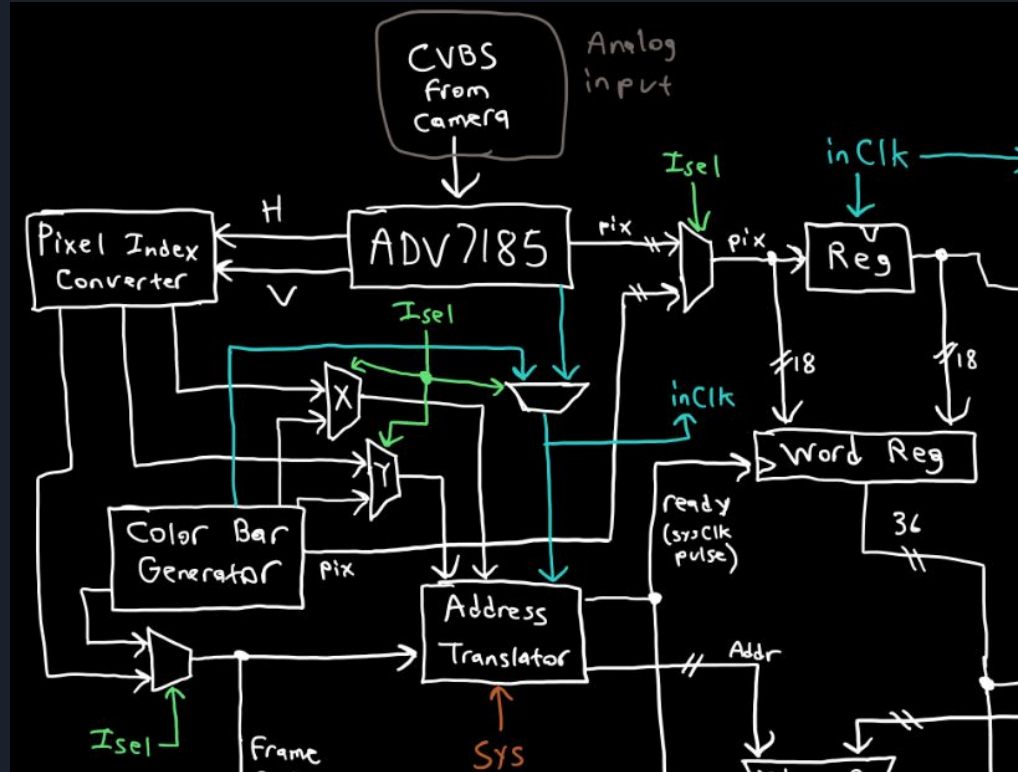 CVBS
from
Camera
Analog
input
Isel
inClk
H
V
Pixel Index
Converter
ADV7185
pix
pix
Reg
Isel
18
18
X
inClk
Y
Word Reg
ready
(sysClk
pulse)
36
Color Bar
Generator
pix
Address
Translator
Addr
Isel
Sys
Frame